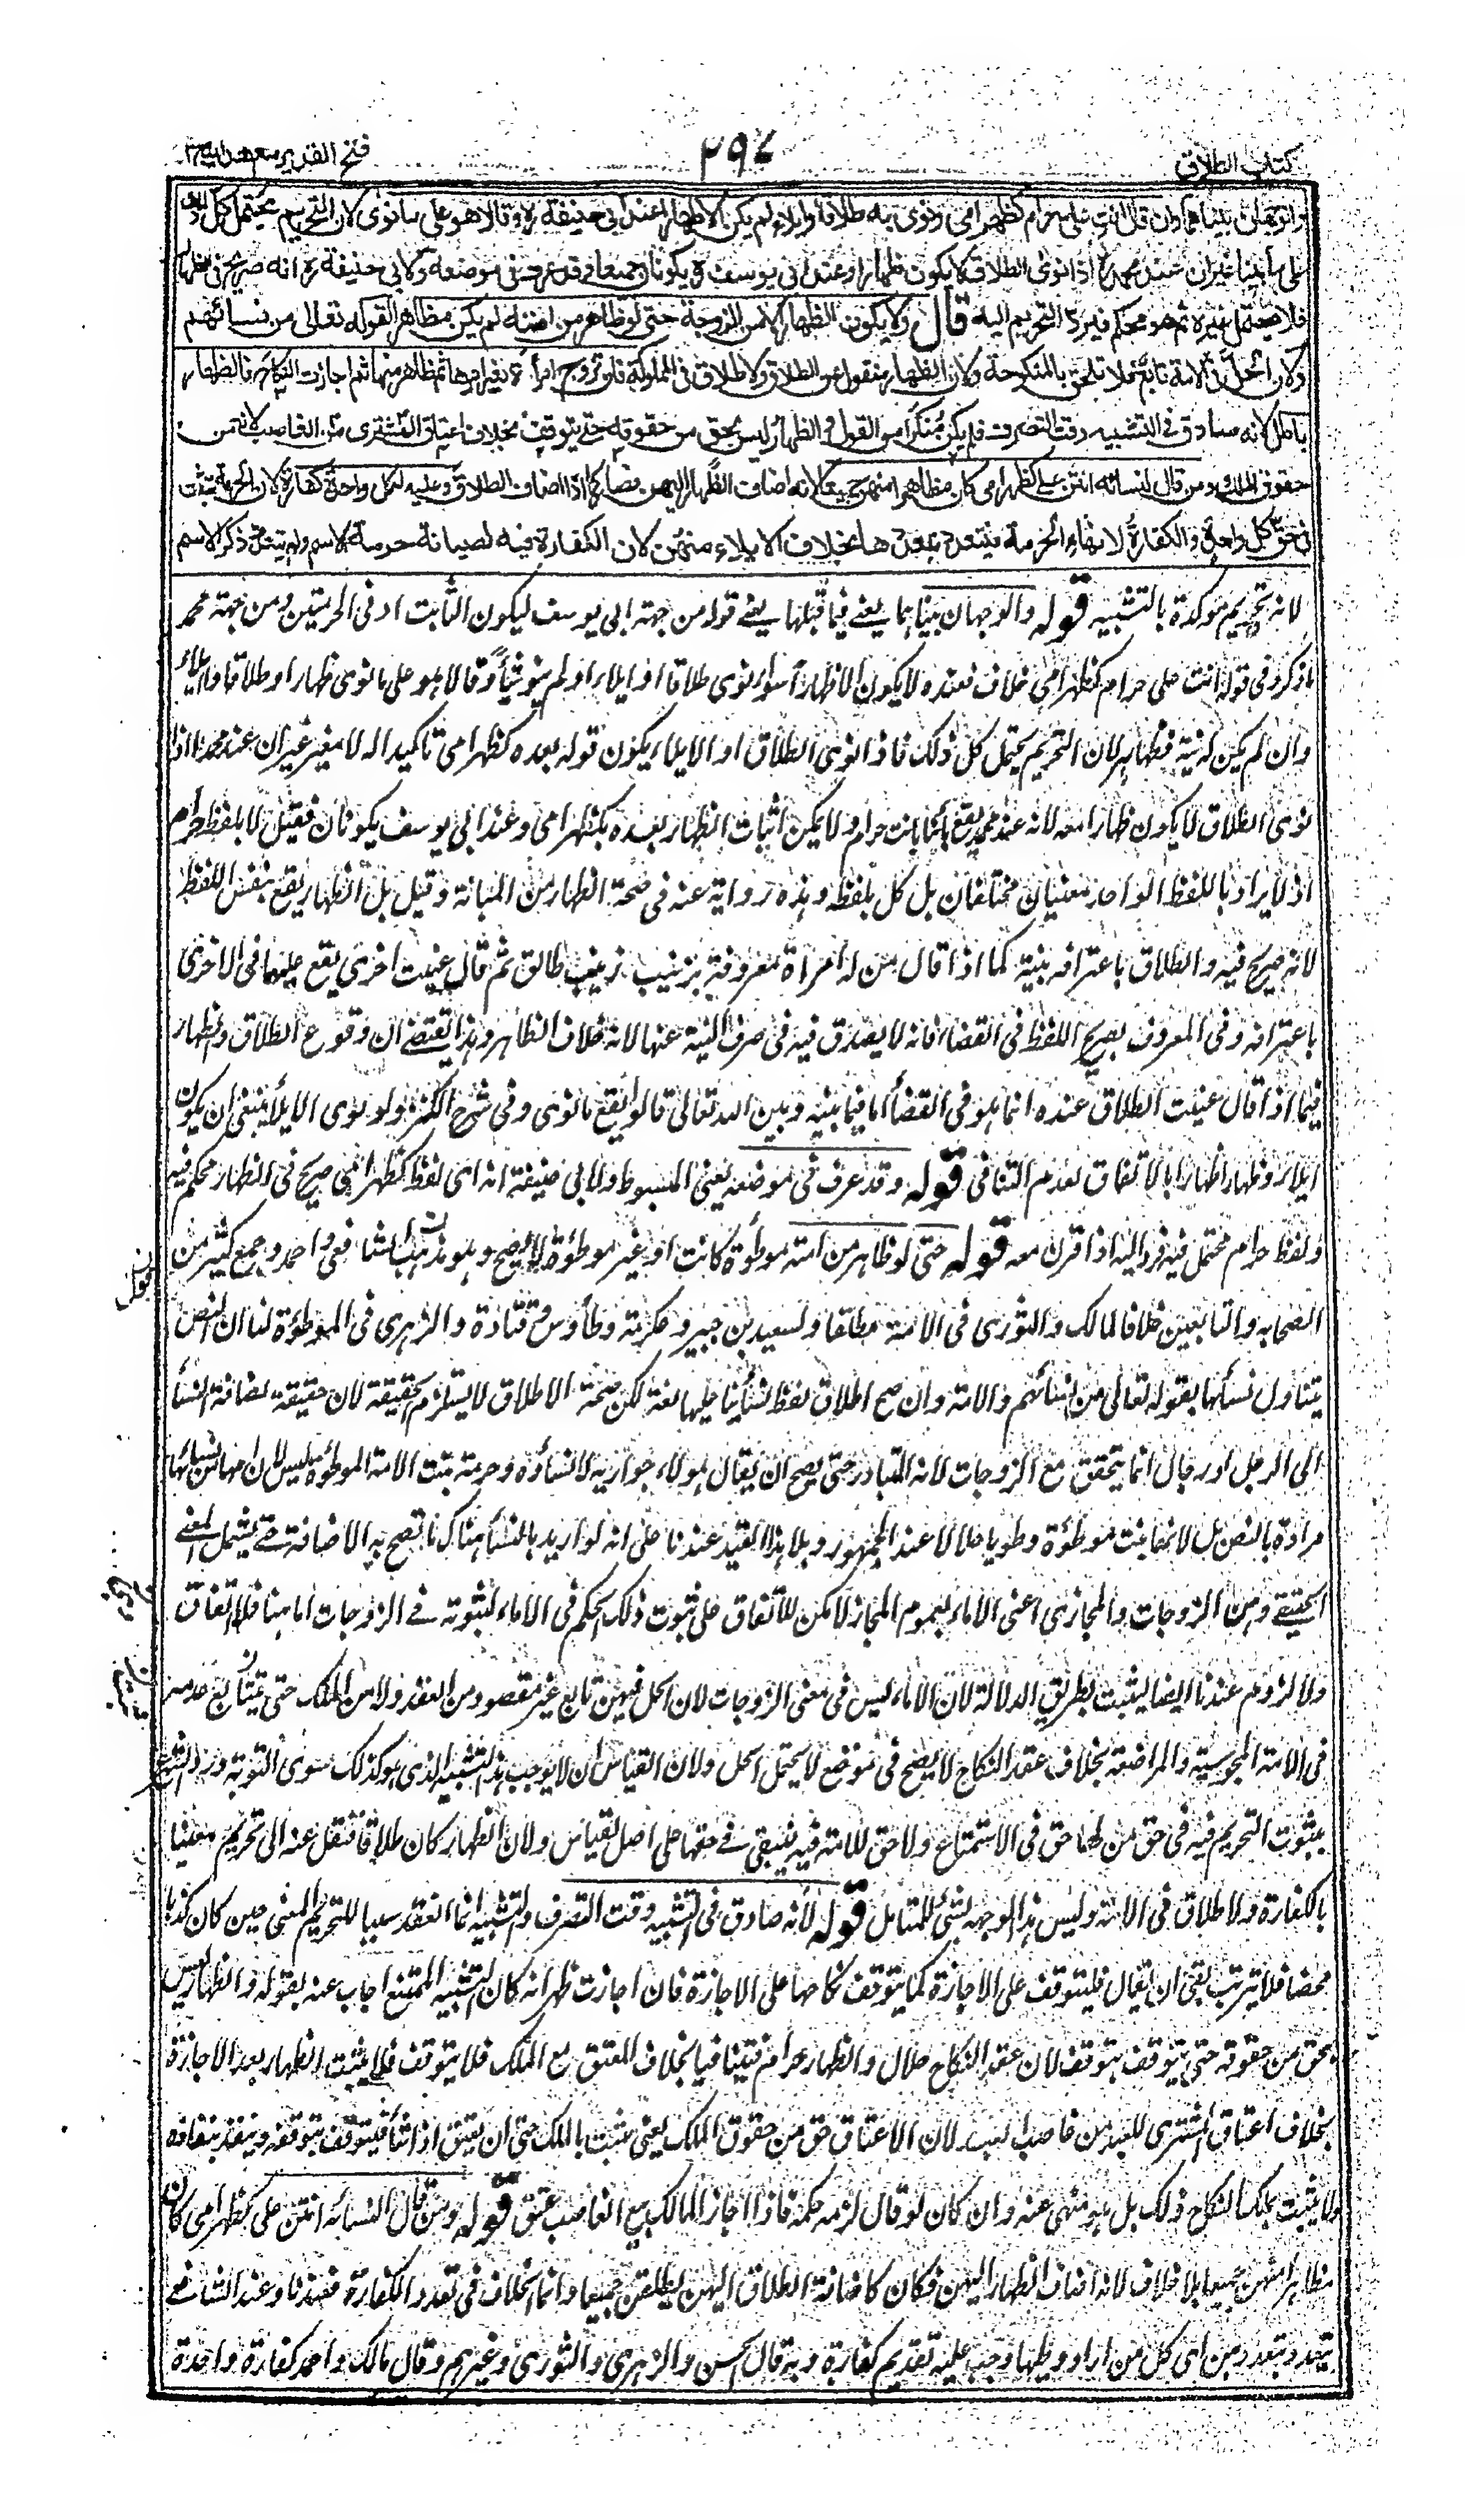 كتاب الطلاق
٢٩٧
فتح القدير مع هداية ج٢
والوجهان بيناهما وان قال انت على حرام كظهر امى ونوى به طلاقا او ايلاء لم يكن الا ظهارا عند ابى حنيفة رح وقالا هو على ما نوى لان التحريم يحتمل كل ذلك
على ما بينا غير ان عند محمد رح اذا نوى الطلاق لا يكون ظهارا وعند ابى يوسف رح يكونان جميعا وقد عرف فى موضعه ولابى حنيفة رح انه صريح فى الظهار
فلا يحتمل غيره ثم هو محكم فيرد التحريم اليه قال ولا يكون الظهار الا من الزوجة حتى لو ظاهر من امته لم يكن مظاهرا لقوله تعالى من نسائهم
ولان الحل فى الامة تابع فلا تلحق بالمنكوحة ولان الظهار منقول عن الطلاق ولا طلاق فى المملوكة فلو تزوج امرأة بغير امرها ثم ظاهر منها ثم اجازت النكاح فالظهار
باطل لانه صادق فى التشبيه وقت التصرف فلم يكن منكرا من القول والظهار ليس بحق من حقوقه حتى يتوقف بخلاف اعتاق المشترى من الغاصب لانه من
حقوق الملك ومن قال لنسائه انتن على كظهر امى كان مظاهرا منهن جميعا لانه اضاف الظهار اليهن فصار كما اذا اضاف الطلاق وعليه لكل واحدة كفارة لان الحرمة تثبت
فى حق كل واحدة والكفارة لانهاء الحرمة فيتعدد بتعددها بخلاف الايلاء منهن لان الكفارة فيه لصيانة حرمة الاسم ولم يتعدد ذكر الاسم
لانه تحريم مؤكدة بالتشبيه قوله والوجهان بيناهما يعنى فيما قبلها يعنى قوله من جهة ابى يوسف ليكون الثابت ادنى الحرمتين ومن جهة محمد
ما ذكر وفى قوله انت على حرام كظهر امى خلاف فعنده لا يكون الا ظهارا سواء نوى طلاقا او ايلاء او لم ينو شيأ وقالا هو على ما نوى ظهار او طلاقا وايلاء
وان لم يكن له نية فظهار لان التحريم يحتمل كل ذلك فاذا نوى الطلاق او الايلاء يكون قوله بعده كظهر امى تاكيدا له لا مغير غير ان عند محمد اذا
نوى الطلاق لا يكون ظهارا معه لانه عند محمد يقع بائنا بانت حرام ولا يمكن اثبات الظهار بعده بكظهر امى وعند ابى يوسف يكونان فقيل لا بلفظ حرام
اذ لا يراد باللفظ الواحد معنيان مختلفان بل كل بلفظه وهذه رواية عنه فى صحة الظهار من المبانة وقيل بل الظهار يقع بنفس اللفظ
لانه صريح فيه والطلاق باعترافه بنية كما اذا قال من له امرأة معروفة بزينب زينب طالق ثم قال عنيت اخرى يقع عليهما فى الاخرى
باعترافه وفى المعروف بصريح اللفظ فى القضاء فانه لا يصدق فيه فى صرف النية عنها لانه خلاف الظاهر وهذا يقتضى ان وقوع الطلاق والظهار
فيما اذا قال عنيت الطلاق عنده انما هو فى القضاء اما فيما بينه وبين الله تعالى قالوا يقع ما نوى وفى شرح الكنز ولو نوى الايلاء ينبغى ان يكون
ايلاء وظهارا ظهارا بالاتفاق لعدم التنافى قوله وقد عرف فى موضعه يعنى المبسوط ولابى حنيفة انه اى لفظ كظهر امى صريح فى الظهار محكم فيه
ولفظ حرام محتمل فيه فرد اليه اذا قرن معه قوله حتى لو ظاهر من امته موطوءة كانت او غير موطوءة لا يصح وهو مذهب الشافعى واحمد وجمع كثير من
الصحابه والتابعين خلافا لمالك والثورى فى الامة مطلقا ولسعيد بن جبير وعكرمة وطاؤس وقتادة والزهرى فى الموطوءة لنا ان النص
يتناول نساءنا بقوله تعالى من نسائهم والامة وان صح اطلاق لفظ نسائنا عليها لغة لكن صحة الاطلاق لا يستلزم الحقيقة لان حقيقة اضافة النساء
الى الرجل او رجال انما يتحقق مع الزوجات لانه المتبادر حتى يصح ان يقال هؤلاء جواريه لا نساؤه وحرمة بنت الامة الموطوءة ليس لان امها من نسائنا
مرادة بالنص بل لانها بنت موطوءة وطويا حلالا عند الجمهور وبلا هذا القيد عندنا على انه لو اريد بالنساء هناك ما تصح به الاضافة حتى يشمل المعنى
الحقيقى وهن الزوجات والمجازى اعنى الاماء بعموم المجاز لا مكن للاتفاق على ثبوت ذلك الحكم فى الاماء لثبوته فى الزوجات اما هنا فلا اتفاق
ولا لزوم عندنا ايضا ليثبت بطريق الدلالة لان الاماء ليس فى معنى الزوجات لان الحل فيهن تابع غير مقصود من العقد ولا من الملك حتى يثبتا مع عدمه
فى الامة المجوسية والمراضعة بخلاف عقد النكاح لا يصح فى موضع لا يحتمل الحل ولان القياس ان لا يوجب هذا التشبيه الذى هو كذلك سوى التوبة ورد الشرع
بثبوت التحريم فيه فى حق من لها حق فى الاستمتاع ولا حق للامة فيه فيبقى فى حقها على اصل القياس ولان الظهار كان طلاقا فنقل عنه الى تحريم مغيا
بالكفارة ولا طلاق فى الامة وليس هذا الوجه بشئ للمتامل قوله لانه صادق فى التشبيه وقت التصرف والتشبيه انما انعقد سببا للتحريم المغيى حين كان كذبا
محضا فلا يترتب بقى ان يقال فليتوقف على الاجازة كما يتوقف نكاحها على الاجازة فان اجازت ظهر انه كان التشبيه الممتنع اجاب عنه بقوله والظهار ليس
بحق من حقوقه حتى يتوقف بتوقفه لان عقد النكاح حلال والظهار حرام فتنافيا بخلاف العتق مع الملك فلا يتوقف فلا يثبت الظهار بعد الاجازة
بخلاف اعتاق المشترى للعبد من غاصب العبد لان الاعتاق حق من حقوق الملك يعنى يثبت بالملك حتى ان يعتق اذا شاء فيتوقف بتوقفه وينفذ بنفاذه
ولا يثبت بملك النكاح ذلك بل هو منهى عنه وان كان لو قال لزمه حكمه فاذا اجاز المالك بيع الغاصب عتق قوله ومن قال لنسائه انتن على كظهر امى كان
مظاهرا منهن جميعا بلا خلاف لانه اضاف الظهار اليهن فكان كاضافة الطلاق اليهن ليطلقن جميعا وانما الخلاف فى تعدد الكفارة فعندنا وعند الشافعى
يتعدد بتعددهن اى كل من اراد وطيها وجب عليه تقديم كفارة وبه قال الحسن والزهرى والثورى وغيرهم وقال مالك واحمد كفارة واحدة